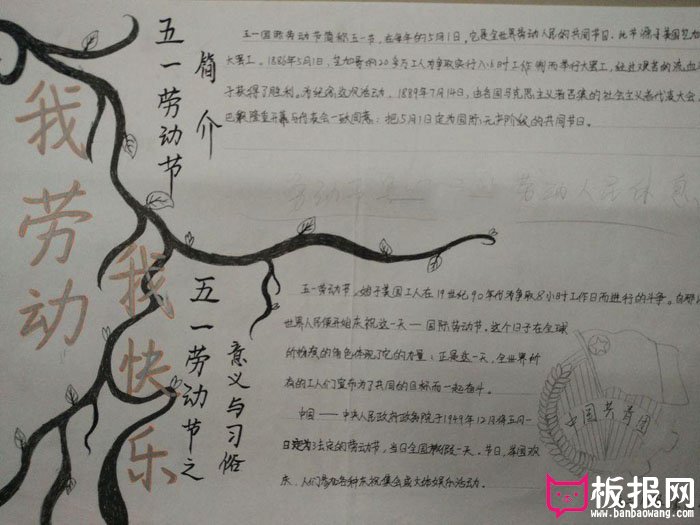 我劳动
我快乐
五一劳动节
简介
五一国际劳动节简称五一节,在每年的5月1日。它是全世界劳动人民的共同节日。此节源于美国芝加
大罢工。1886年5月1日,芝加哥的20多万工人为争取实行八小时工作制而举行大罢工,经过艰苦的流血
子获得了胜利。为纪念这次活动,1889年7月14日,由各国马克思主义者召集的社会主义者代表大会,
巴黎隆重开幕与代表会一致同意:把5月1日定为国际无产阶级的共同节日。
劳动人民休息
五一劳动节之
意义与习俗
五一劳动节,始于美国工人在19世纪90年代为争取8小时工作日而进行的斗争。自那
世界人民便开始庆祝这一天——国际劳动节。这个日子在全球
的角色体现了它的力量:正是这一天,全世界所
有的工人们宣布为了共同的目标而一起奋斗。
中国——中央人民政府政务院于1949年12月将五月一
日定为法定的劳动节,当日全国放假一天。节日,举国欢
庆,人们参加各种庆祝集会或文体娱乐活动。
中国共青团
板报网
www.banbaowang.com